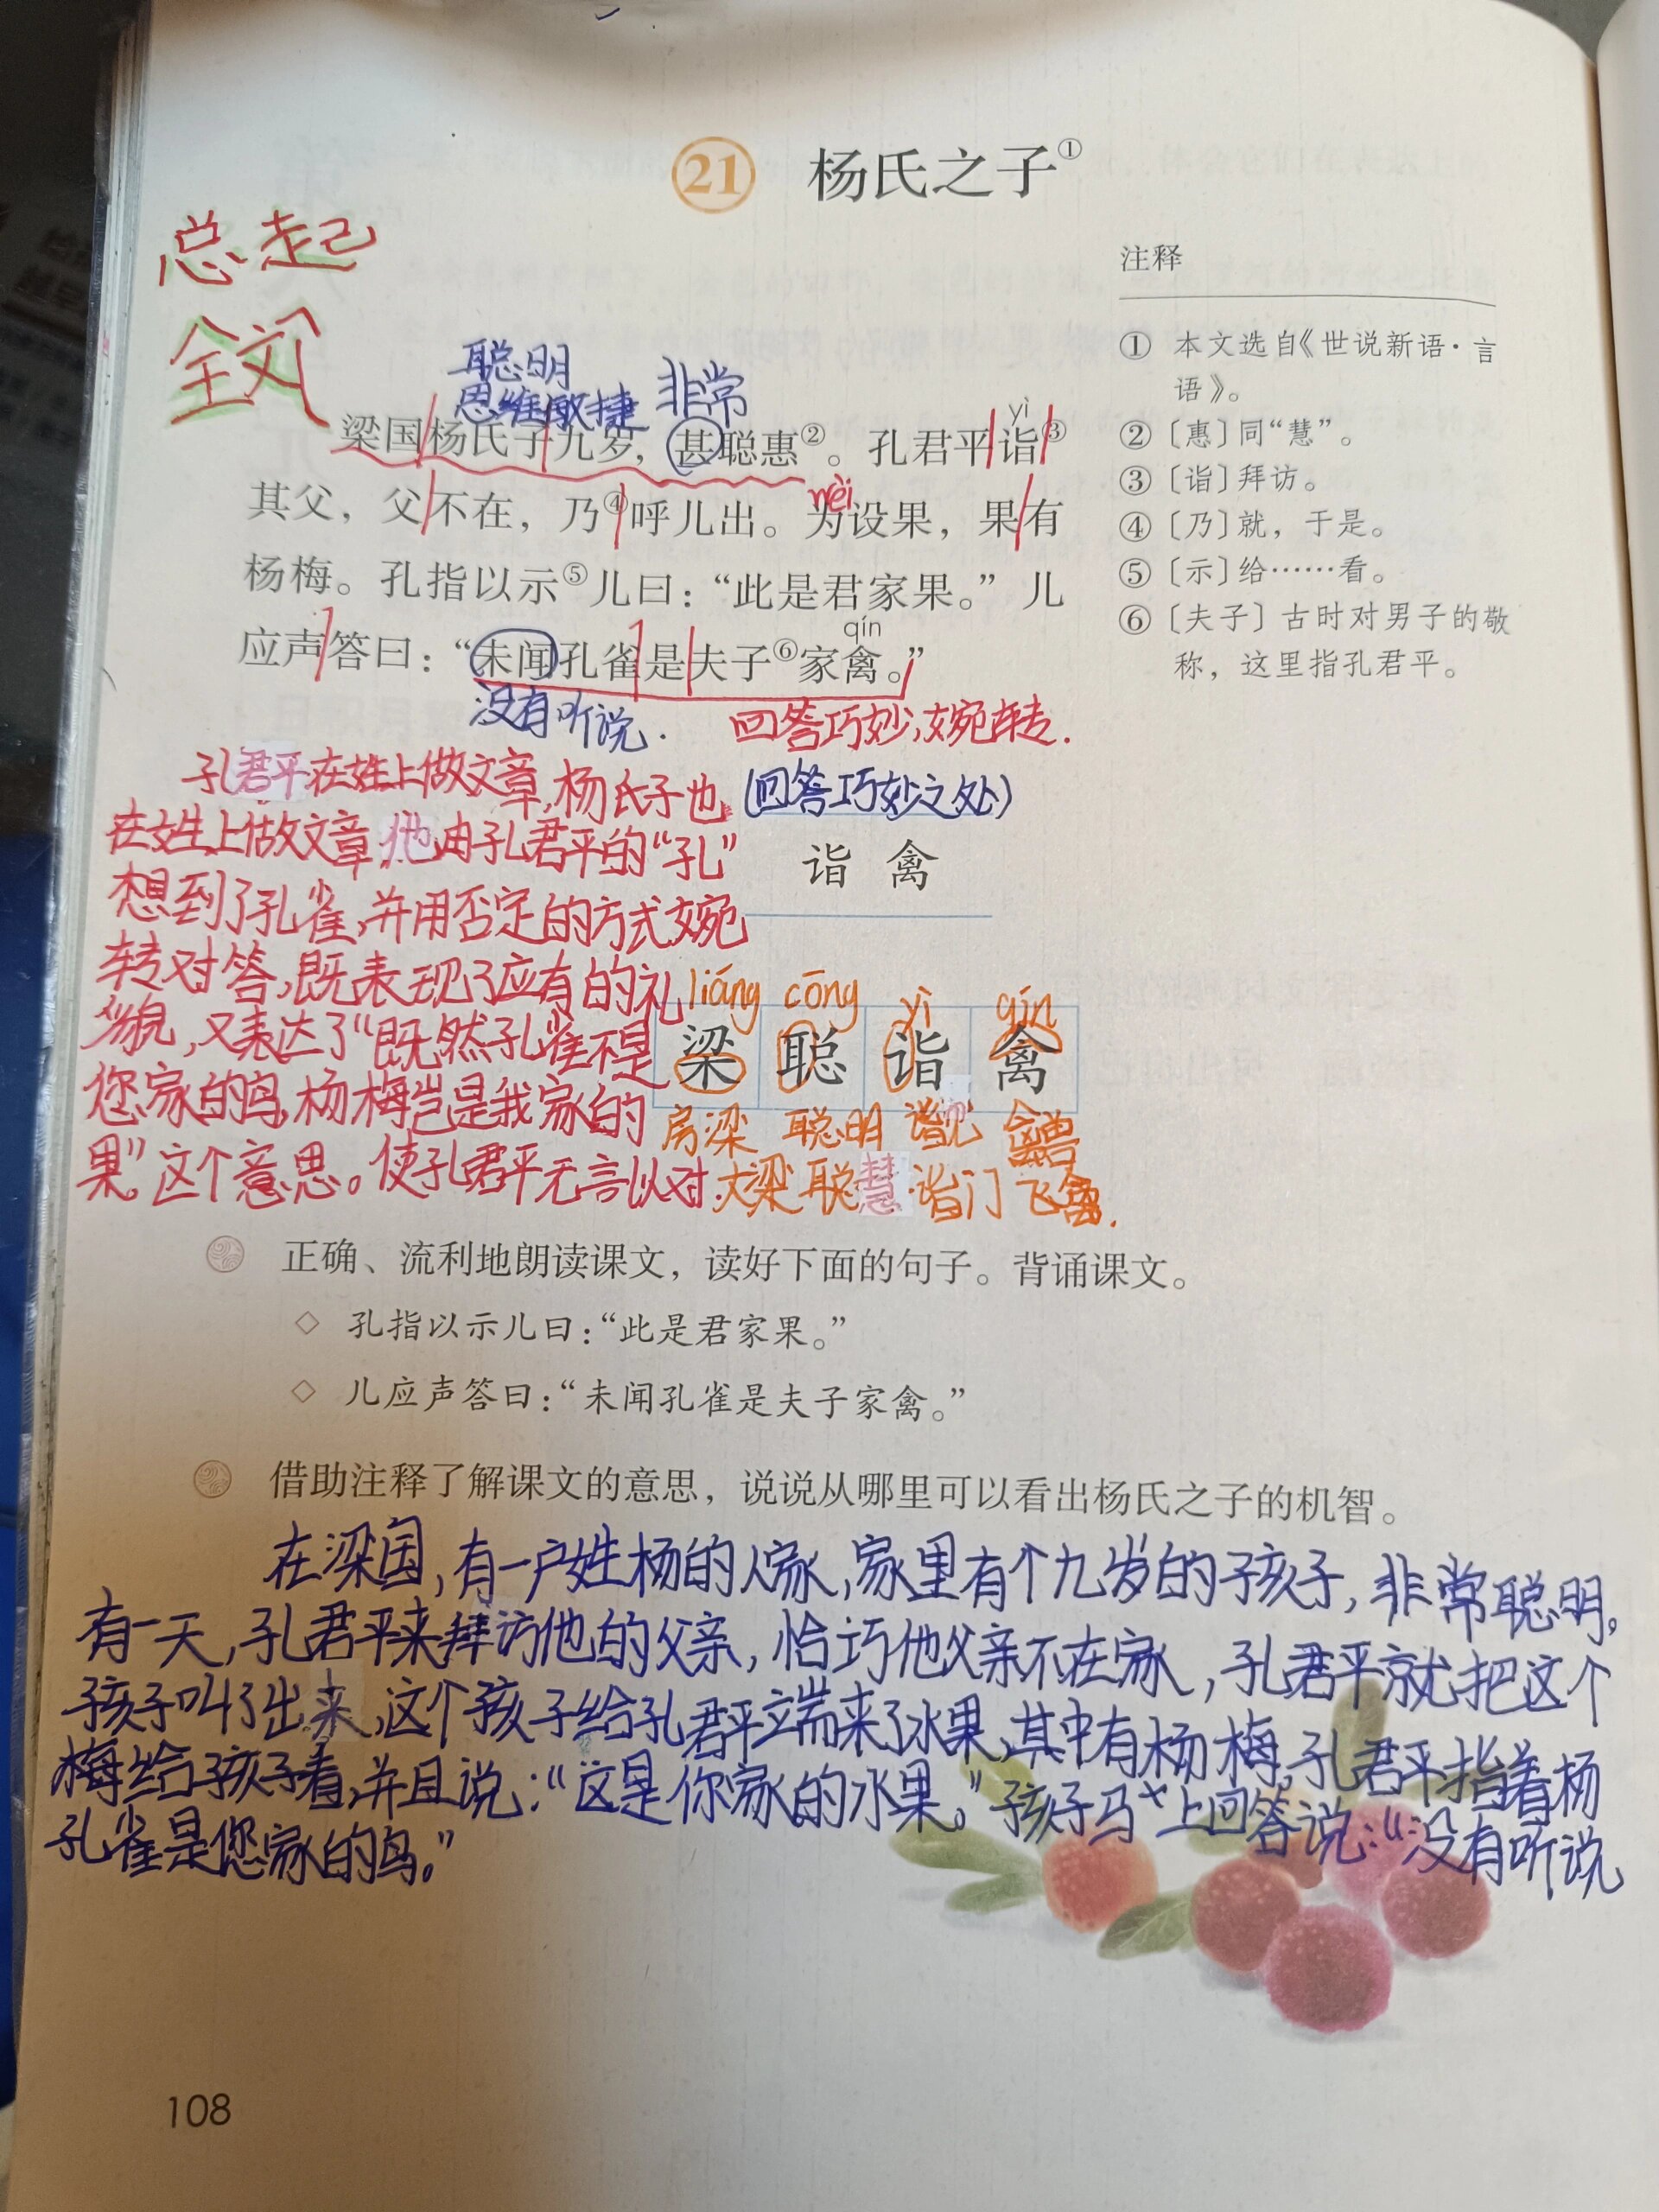 21 杨氏之子①
总起
全文
注释
① 本文选自《世说新语·言
语》。
② 〔惠〕同“慧”。
③ 〔诣〕拜访。
④ 〔乃〕就，于是。
⑤ 〔示〕给……看。
⑥ 〔夫子〕古时对男子的敬
称，这里指孔君平。
聪明
思维敏捷 非常
yì
梁国杨氏子九岁，甚聪惠②。孔君平诣③
wèi
其父，父不在，乃④呼儿出。为设果，果有
杨梅。孔指以示⑤儿曰：“此是君家果。”儿
qín
应声答曰：“未闻孔雀是夫子⑥家禽。”
没有听说.
回答巧妙,婉转.
(回答巧妙之处)
孔君平在姓上做文章,杨氏子也
在姓上做文章,他由孔君平的“孔”
想到了孔雀,并用否定的方式婉
转对答,既表现了应有的礼
貌,又表达了“既然孔雀不是
您家的鸟,杨梅岂是我家的
果”这个意思。使孔君平无言以对.
诣 禽
liáng cōng yì qín
梁 聪 诣 禽
房梁 聪明 禽兽
大梁 聪慧 诣门 飞禽.
正确、流利地朗读课文，读好下面的句子。背诵课文。
◇ 孔指以示儿曰：“此是君家果。”
◇ 儿应声答曰：“未闻孔雀是夫子家禽。”
借助注释了解课文的意思，说说从哪里可以看出杨氏之子的机智。
在梁国,有一户姓杨的人家,家里有个九岁的孩子,非常聪明。
有一天,孔君平来拜访他的父亲,恰巧他父亲不在家,孔君平就把这个
孩子叫了出来,这个孩子给孔君平端来了水果,其中有杨梅,孔君平指着杨
梅给孩子看,并且说:“这是你家的水果。”孩子马上回答说:“没有听说
孔雀是您家的鸟。”
108